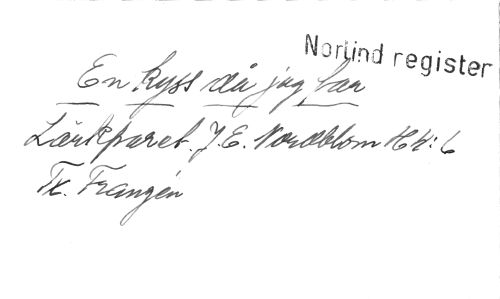 Norlind register
En kyss då jag bar
Lärkparet. J. E. Nordblom HK: 6
Tx. Franzén